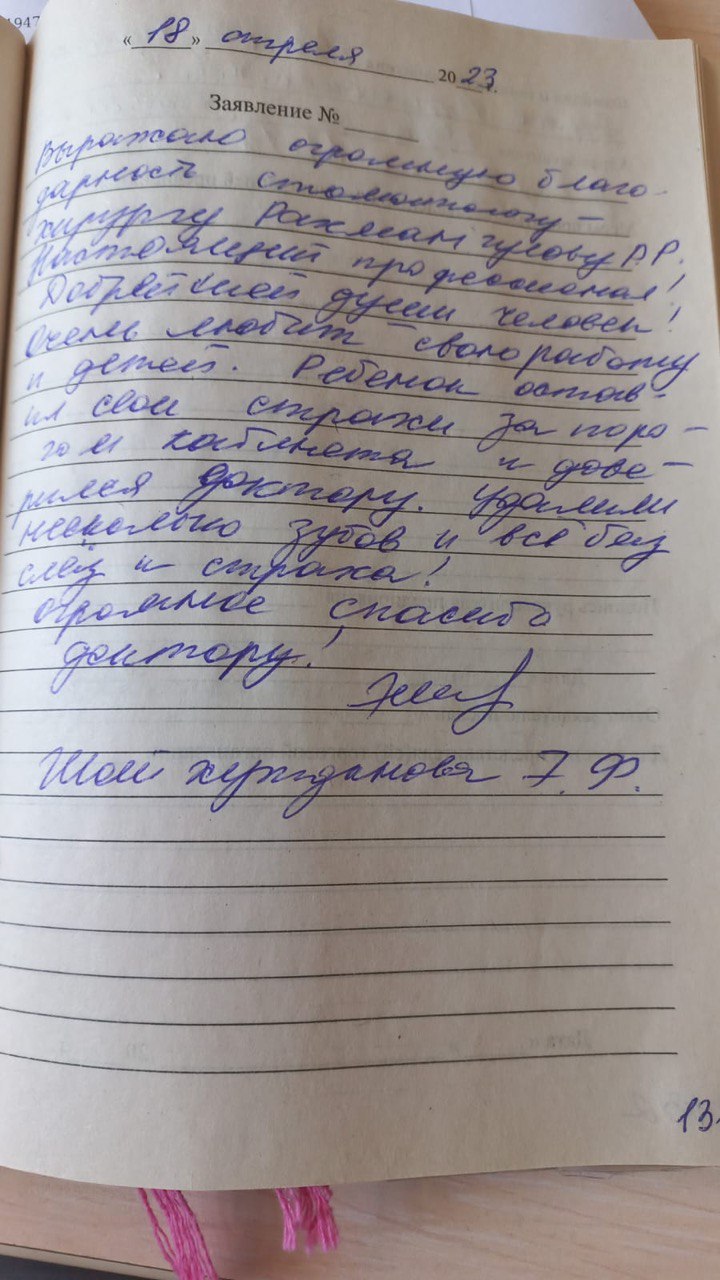 1947
« 18 » апреля 2023 г.
Заявление № ______
Выражаю огромную благо-
дарность стоматологу-
хирургу Рахмангулову Р.Р.
Настоящий профессионал!
Добрейшей души человек!
Очень любит свою работу
и детей. Ребенок остав-
ил свои страхи за поро-
гом кабинета и дове-
рился доктору. Удалили
несколько зубов и всё без
слёз и страха!
Огромное спасибо
доктору!
Шайхутжданова Э. Ф.
13.